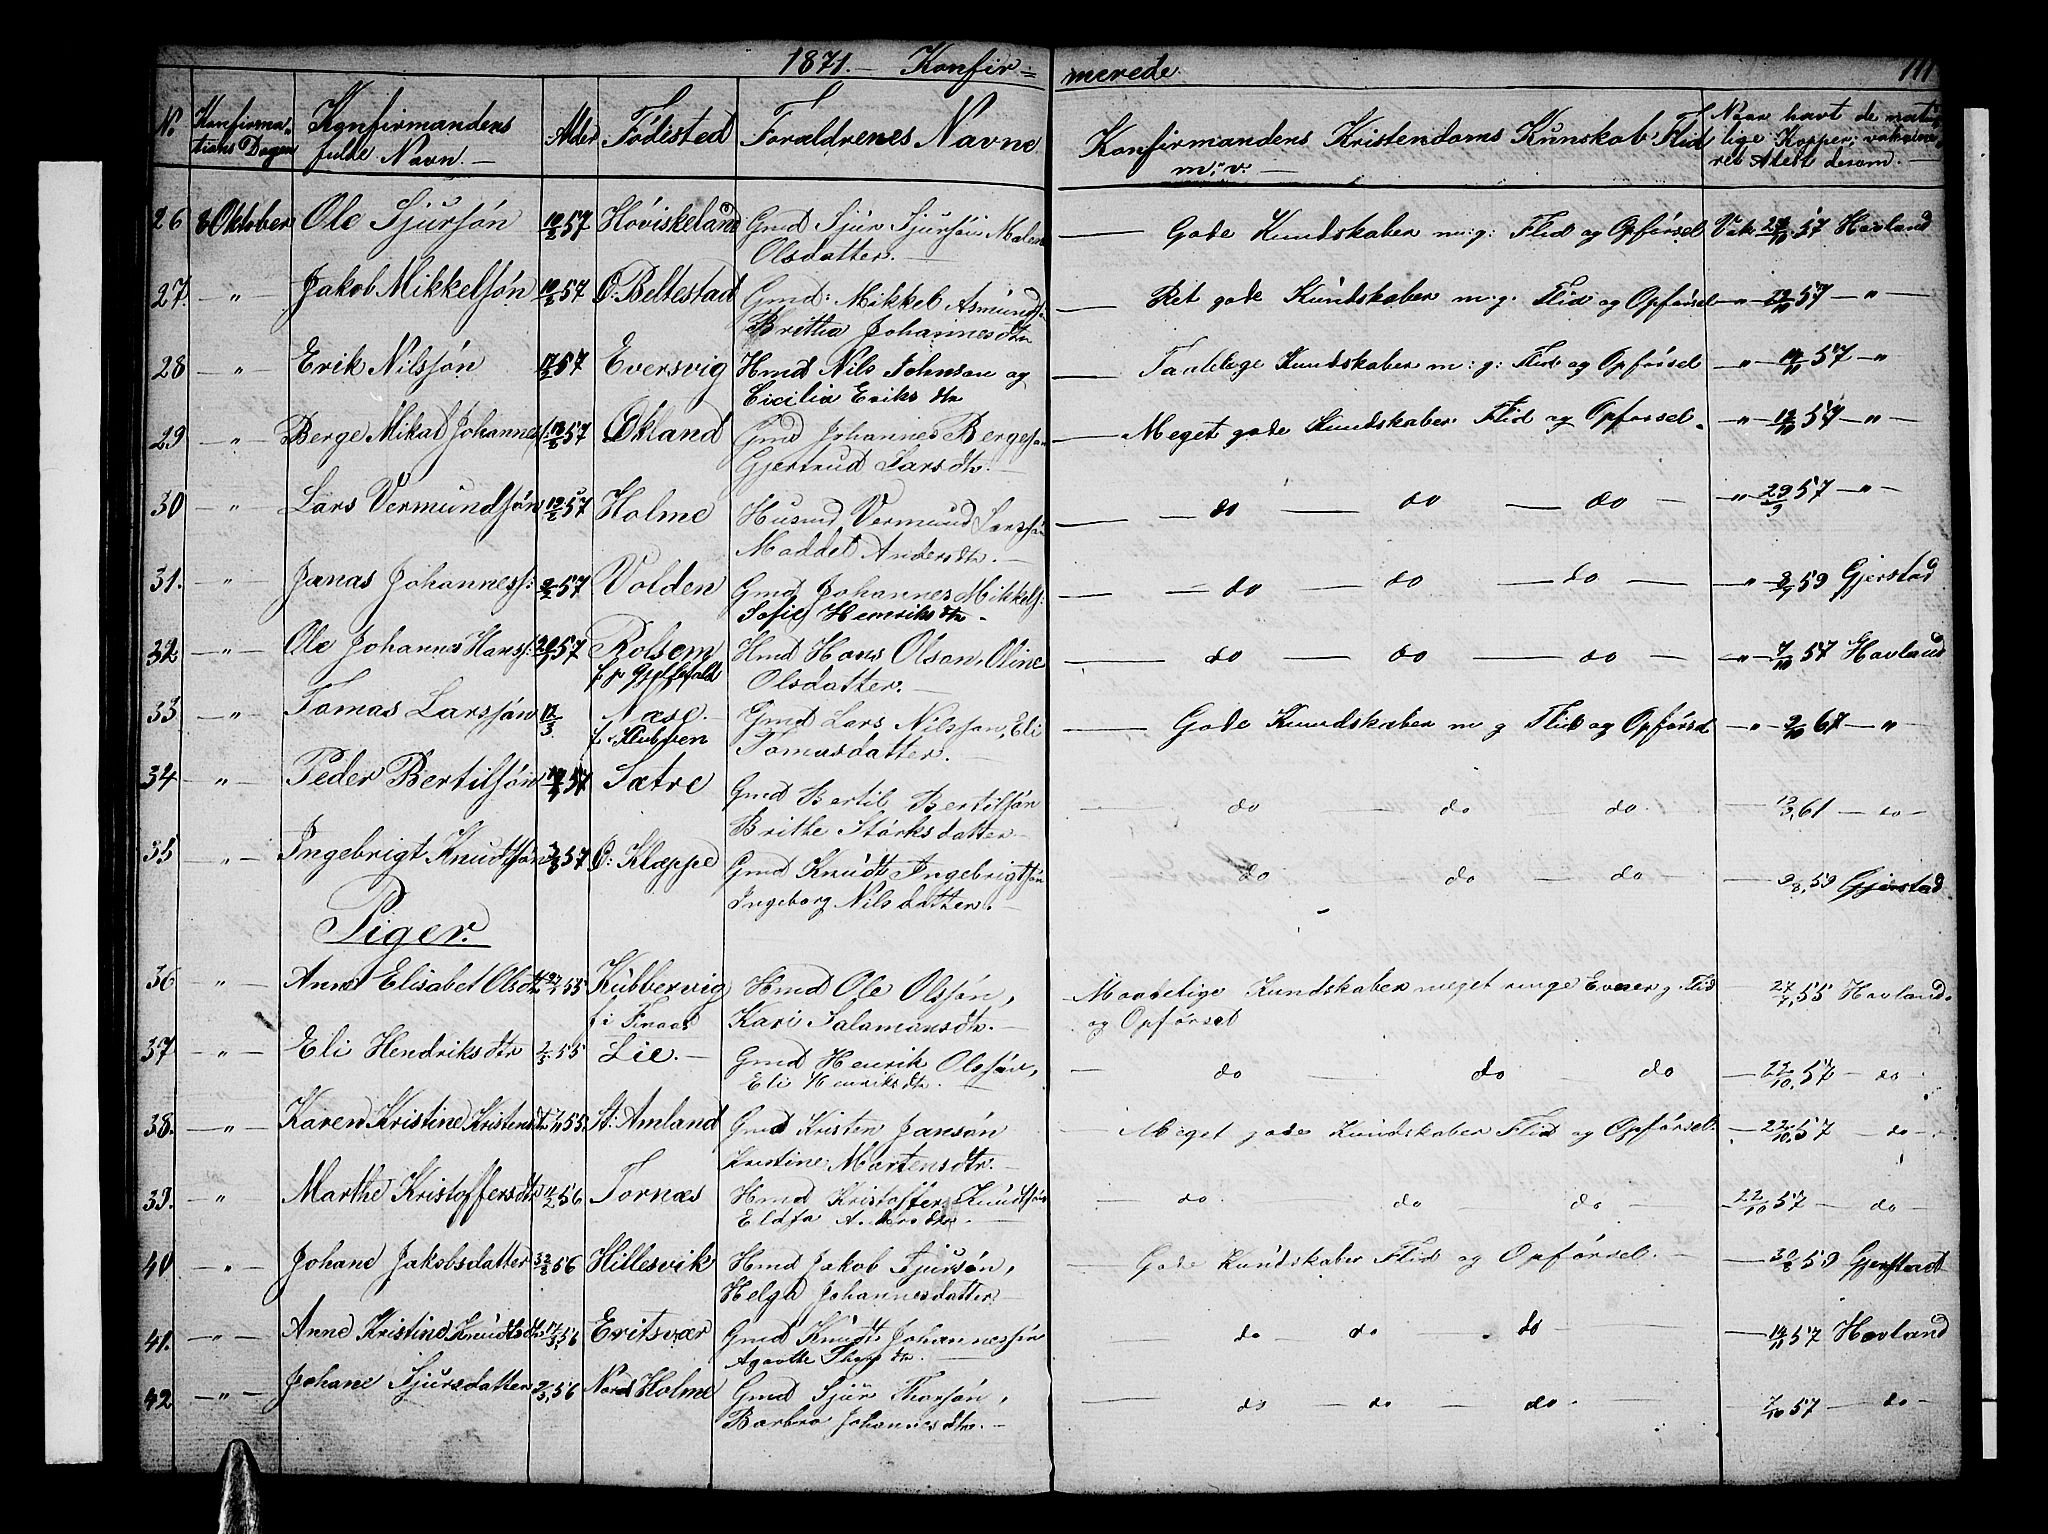 1871. — Konfir=
merede. 111
No Konfirma-
tions Dagen Konfirmandens
fulde Navn. — Alder Födisted Forældrenes Navne Konfirmandens Kristendoms Kunskab Flid
m: v. — Naar havt de natur
lige Kopper; vaksine
ret Atest desom. —
26 8 Oktober Ole Sjursön 57 Höviskeland Gmd Sjur Sjursön Malen
Olsdatter. — Gode Kundskaber m: g: Flid og Opförsel Vak 57 Havland
27. — „ — Jakob Mikkelsön 57 O: Beltestad Gmd: Mikkel Asmunds
Britha Johannesdtr — Ret gode Kundskaber m: g: Flid og Opförsel — „ — 57 — „ —
28 — „ — Erik Nilsjön 57 Eversvig Hmd Nils Johnson og
Cicilia Eriksdtr — Taalelege Kundskaber m: g: Flid og Opförsel — „ — 57 — „
29 — „ — Berge Mikal Johannes 57 Økland Gmd Johannes Bergeson
Gjertrud Larsdtr. — — Meget gode Kundskaber Flid og Opförsel — „ — 57 — „
30 — „ — Lars Vermundsjön 57 Holme Husmd Vermund Larsson
Maddel Andersdtr. — — do — do — do — — „ — 29/9 57 — „ —
31. — „ — Jonas Johannesf: 57 Volden Gmd Johannes Mikkelf:
Sofie Henriksdtr. — — do — do — do — „ — 59 Gjerstad
32 — „ — Ole Johannes Hansf: 57 Rolsem Hmd Hans Olson, Oline
Olsdatter. — — do — do — do — „ — 7/10 57 Havland
33 — „ — Tomas Larsjön 17/3 Næse. Gmd Lars Nilsson, Eli
f. Slubsven Tomasdatter. — — Gode Kundskaber m g Flid og Opförsel — „ — 2/10 67 — „
34 — „ — Peder Bertilsön 57 Sætre Gmd Bertil Bertilsön
Brithe Störksdatter — — do — do — do. — 61 — do —
35 — „ — Ingebrigt Knudtsön 57 O: Klæppe Gmd Knudt Ingebrigtsön
Ingeborg Nilsdatter. — — do — do — do — 9/8, 59 Gjerstad
Piger.
36 — „ — Anne Elisabet Olsdtr 55 Kubbervig Hmd Ole Olsjön,
f i Finaas Kari Salamansdtr. — Maadelige Kundskaber meget ringe Evner g. Flid
og Opförsel — 55 Havland.
37 — „ — Eli Hendriksdtr 55 Lie. — Gmd Henrik Olsjön,
Eli Henriksdtr. — — do — do — do — 22/10, 57 — do —
38. — „ — Karen Kristine Kristensdtr 55. St: Amland Gmd Kristen Jansön
Kristine Mortensdtr. — — Meget gode Kundskaber Flid og Opförsel — 22/10, 57 — do —
39. — „ Marthe Kristoffersdtr 56 Tornæs Hmd Kristoffer Knudtsön
Andersdtr. — — do. do — do — 22/10 57 — do
40 — „ — Johane Jakobsdatter 56 Hillesvik Hmd Jakob Sjursön,
Helga Johannesdatter — — Gode Kundskaber Flid og Opförsel. — — 30/8 59 Gjerstad
41. — „ — Anne Kristine Knudtsdtr 56 Eritsvær Gmd Knudt Johannessön
Agaathe — — do — do — do — — 14/11 57 Havland
42 — „ — Johane Sjursdatter 56 Nord Holme Gmd Sjur Thorsön,
Barbro Johannesdtr. — — do — do — do. — 7/10 57 — do —